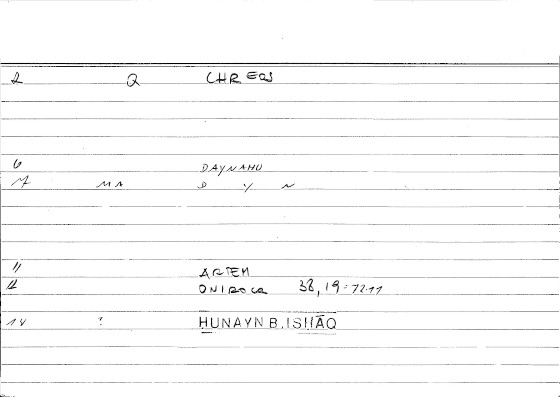 2 Q CHREOS
6 DAYNAHU
17 MA D Y N
11 ARTEM
12 ONIROCR 38,19 = 72.11
14 ? HUNAYN B. ISḤĀQ